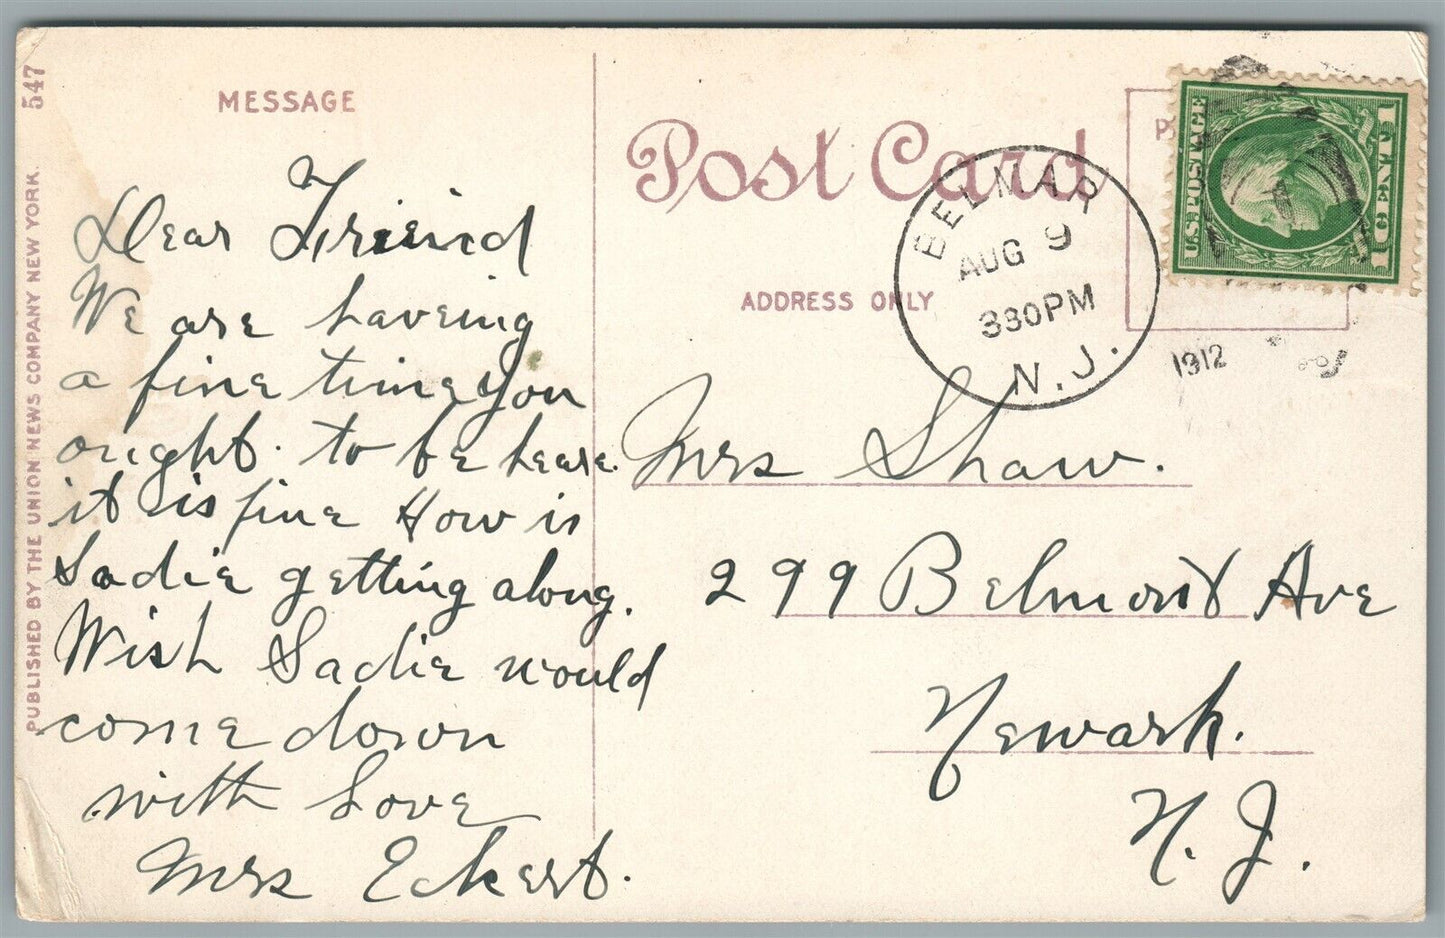 547
PUBLISHED BY THE UNION NEWS COMPANY NEW YORK.
MESSAGE
Dear Friend
We are haveing
a fine time you
ought. to be heare.
it is fine How is
Sadie getting along.
Wish Sadie would
come down
with Love
Mrs Eckert.
Post Card
ADDRESS ONLY
BELMAR
AUG 9
330PM
N.J.
1912
U.S. POSTAGE
1 CENT 1
Mrs Shaw.
299 Belmont Ave
Newark.
N. J.